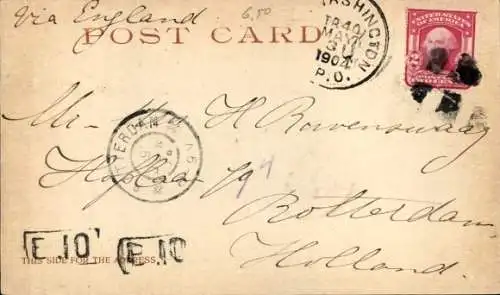 Via England
6,50
POST CARD
WASHINGTON
1840
MAY
30
1904
P.O.
UNITED STATES
OF AMERICA
2
Mr H. Rouwenswaag
Haplaan 19
Rotterdam
ROTTERDAM
Holland.
E 10
E 10
THIS SIDE FOR THE ADDRESS.